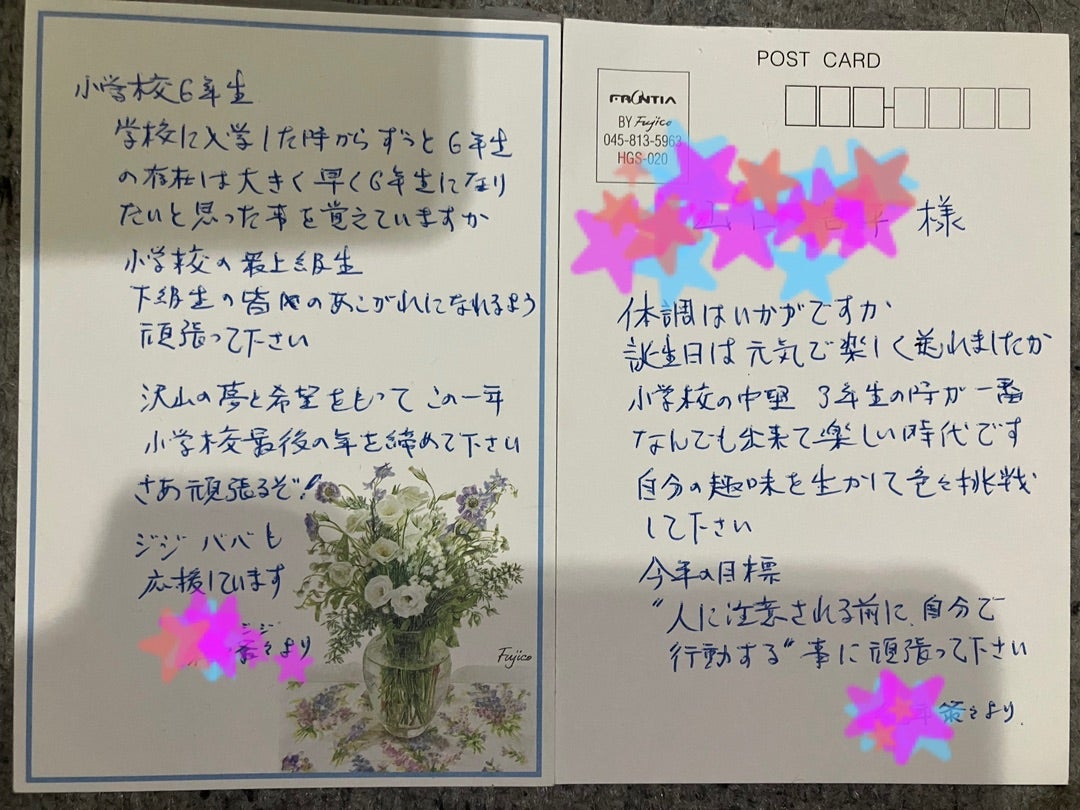 小学校6年生
学校に入学した時からずっと6年生
の存在は大きく早く6年生になり
たいと思った事を覚えていますか
小学校の最上級生
下級生の皆のあこがれになれるよう
頑張って下さい
沢山の夢と希望をもってこの一年
小学校最後の年を締めて下さい
さあ頑張るぞ!
ジジ ババも
応援しています
ジジ
より
Fujico
POST CARD
FRONTIA
BY Fujico
045-813-5963
HGS-020
様
体調はいかがですか
誕生日は元気で楽しく送れましたか
小学校の中堅 3年生の時が一番
なんでも出来て楽しい時代です
自分の趣味を生かして色々挑戦
して下さい
今年の目標
"人に注意される前に、自分で
行動する"事に頑張って下さい
より